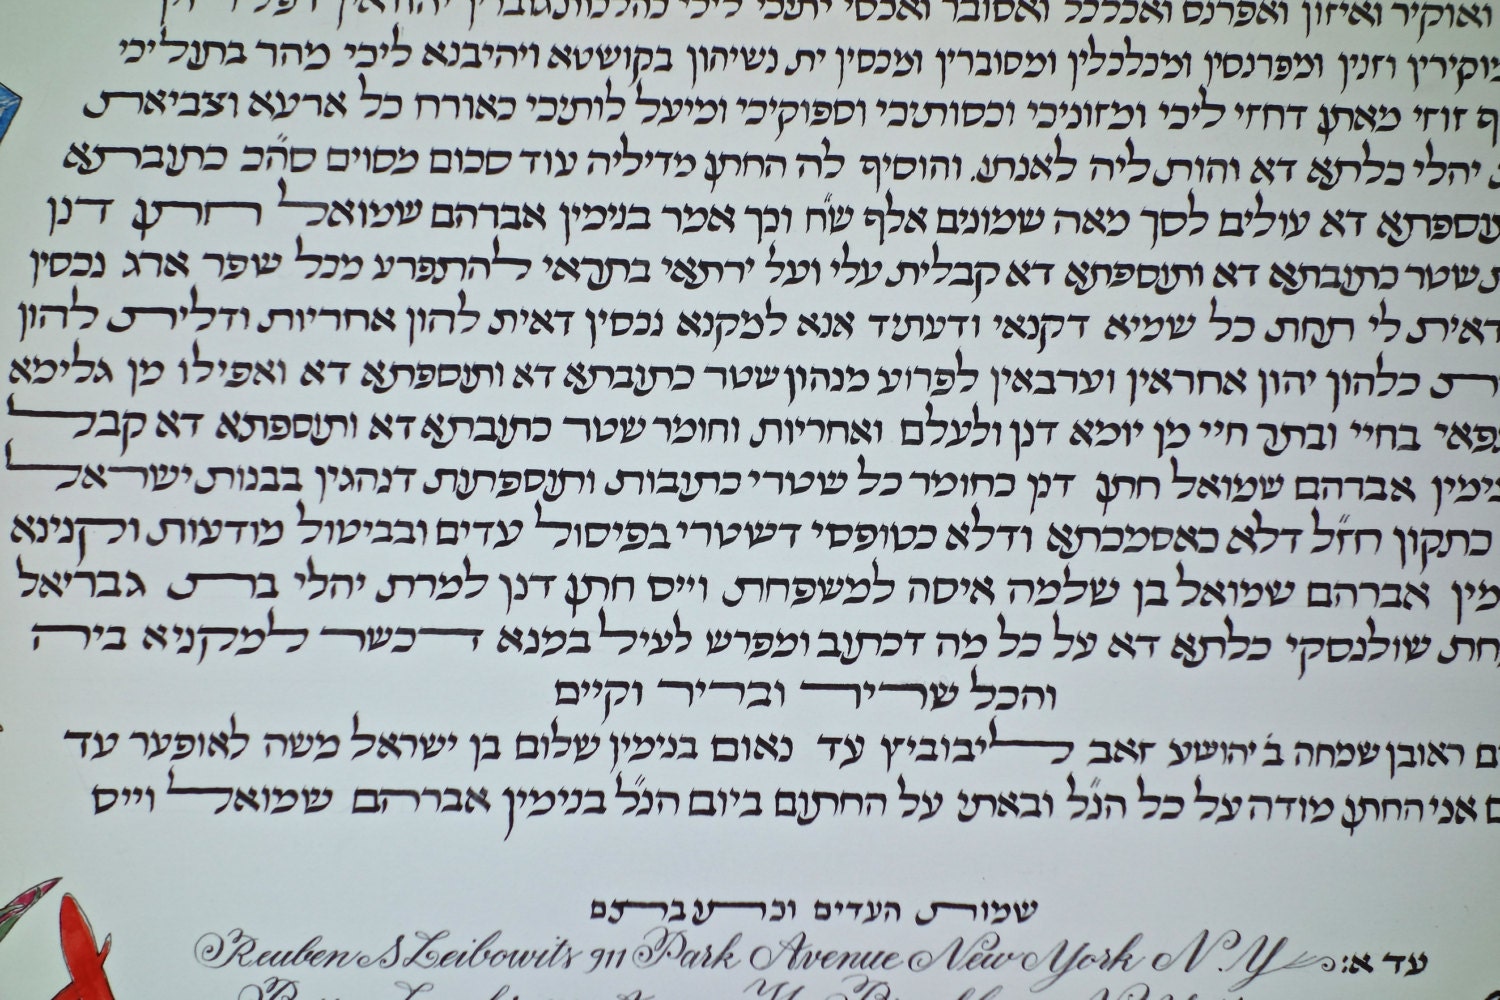 ואוקיר ואיזון ואפרנס ואכלכל ואסובר ואכסי יתיכי ליכי כהלכות גוברין יהודאין
וזנין ומפרנסין ומכלכלין ומסוברין ומכסין ית נשיהון בקושטא ויהיבנא ליכי מהר בתוליכי
זוזי מאתן דחזי ליכי ומזוניכי וכסותיכי וספוקיכי ומיעל לותיכי כאורח כל ארעא וצביאת
יהלי כלתא דא והות ליה לאנתו. והוסיף לה החתן מדיליה עוד סכום מסוים סה״כ כתובתא
דא עולים לסך מאה שמונים אלף ש״ח וכך אמר בנימין אברהם שמואל חתן דנן
שטר כתובתא דא ותוספתא דא קבלית עלי ועל ירתאי בתראי להתפרע מכל שופר ארג נכסין
דאית לי תחת כל שמיא דקנאי ודעתיד אנא למקנא נכסין דאית להון אחריות ודלית להון
כלהון יהון אחראין וערבאין לפרוע מנהון שטר כתובתא דא ותוספתא דא ואפילו מן גלימא
בחיי ובתר חיי מן יומא דנן ולעלם ואחריות וחומר שטר כתובתא דא ותוספתא דא קבל
אברהם שמואל חתן דנן כחומר כל שטרי כתובות ותוספתות דנהגין בבנות ישראל
כתקון חז״ל דלא כאסמכתא ודלא כטופסי דשטרי בפיסול עדים ובביטול מודעות וקנינא
אברהם שמואל בן שלמה איסה למשפחת וייס חתן דנן למרת יהלי בת גבריאל
שולנסקי כלתא דא על כל מה דכתוב ומפרש לעיל במנא דכשר למקניא ביה
והכל שריר ובריר וקיים
ראובן שמחה ב׳ יהושע זאב ליבוביץ עד נאום בנימין שלום בן ישראל משה לאופער עד
אני החתן מודה על כל הנ״ל ובאתי על החתום ביום הנ״ל בנימין אברהם שמואל וייס
שמות העדים וכתובתם
עד א: Reuben S Leibowitz 911 Park Avenue New York N.Y